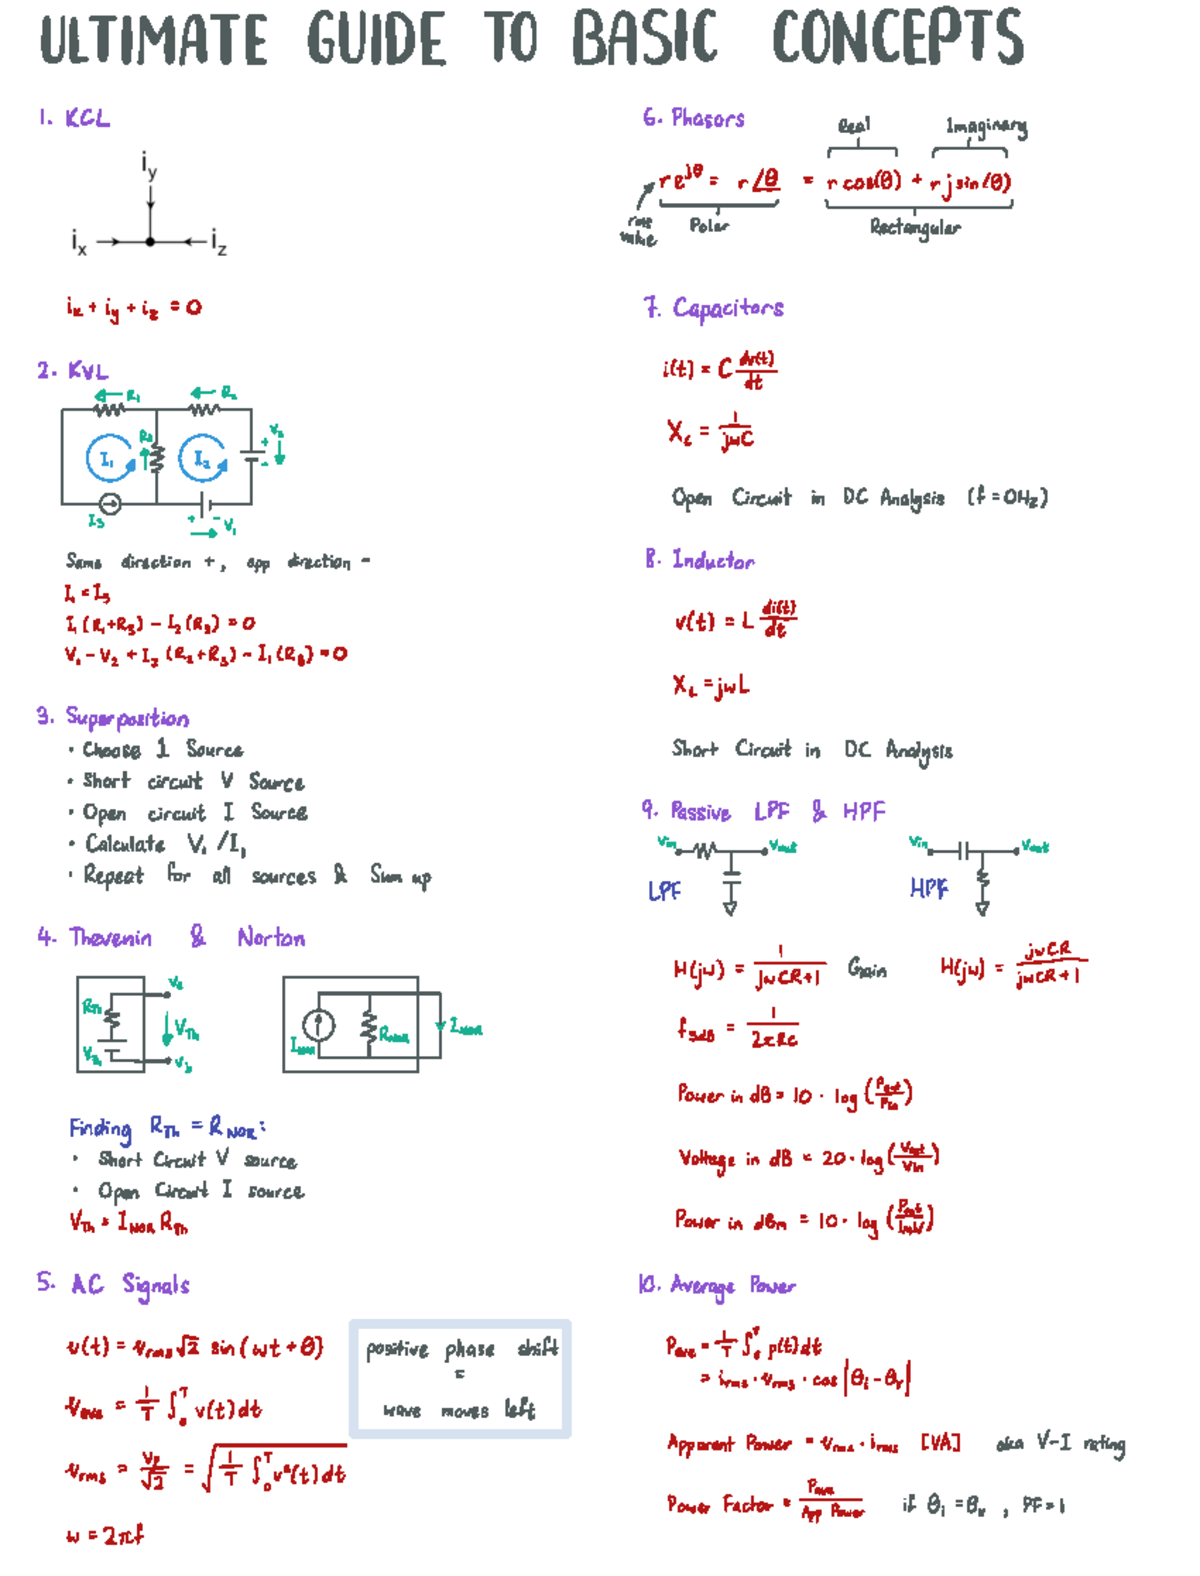 ULTIMATE GUIDE TO BASIC CONCEPTS
1. KCL
i_y
i_x
i_z
i_x + i_y + i_z = 0
2. KVL
R₁
R₂
R₃
V₂
I₁
I₂
I₃
V₁
Same direction +, opp direction -
I₁ = I₃
I₁(R₁+R₃) - I₂(R₃) = 0
V₁ - V₂ + I₂(R₂+R₃) - I₁(R₃) = 0
3. Superposition
• Choose 1 Source
• Short circuit V Source
• Open circuit I Source
• Calculate V₁/I₁
• Repeat for all sources & Sum up
4. Thevenin & Norton
R_Th
V_Th
V_Th
I_NOR
R_NOR
I_NOR
Finding R_Th = R_NOR:
• Short Circuit V source
• Open Circuit I source
V_Th = I_NOR R_Th
5. AC Signals
v(t) = v_rms √2 sin(ωt + θ)
v_ave = 1/T ∫₀ᵀ v(t)dt
v_rms = v_p/√2 = √(1/T ∫₀ᵀ v²(t)dt)
ω = 2πf
positive phase shift
=
wave moves left
6. Phasors
Real
Imaginary
re^jθ = r∠θ = r cos(θ) + r j sin(θ)
rms value
Polar
Rectangular
7. Capacitors
i(t) = C dv(t)/dt
X_c = 1/jωC
Open Circuit in DC Analysis (f = 0Hz)
8. Inductor
v(t) = L di(t)/dt
X_L = jωL
Short Circuit in DC Analysis
9. Passive LPF & HPF
Vin
Vout
LPF
Vin
Vout
HPF
H(jω) = 1/(jωCR+1) Gain H(jω) = jωCR/(jωCR+1)
f_3dB = 1/2πRC
Power in dB = 10 · log(Pout/Pin)
Voltage in dB = 20 · log(Vout/Vin)
Power in dBm = 10 · log(Pout/1mW)
10. Average Power
P_ave = 1/T ∫₀ᵀ p(t)dt
= i_rms · v_rms · cos|θi - θv|
Apparent Power = v_rms · i_rms [VA] aka V-I rating
Power Factor = P_ave/App Power if θi = θv, PF = 1